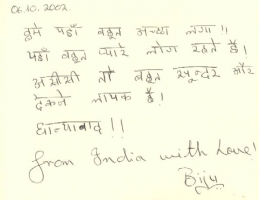 06.10.2002.
तुमे यहाँ बहुत अच्छा लगा॥
यहाँ बहुत प्यारे लोग रहते हैं।
असीसी तो बहुत सुन्दर और
देकने लायक हैं।
धान्यावाद!!
from India with Love!
Bijju